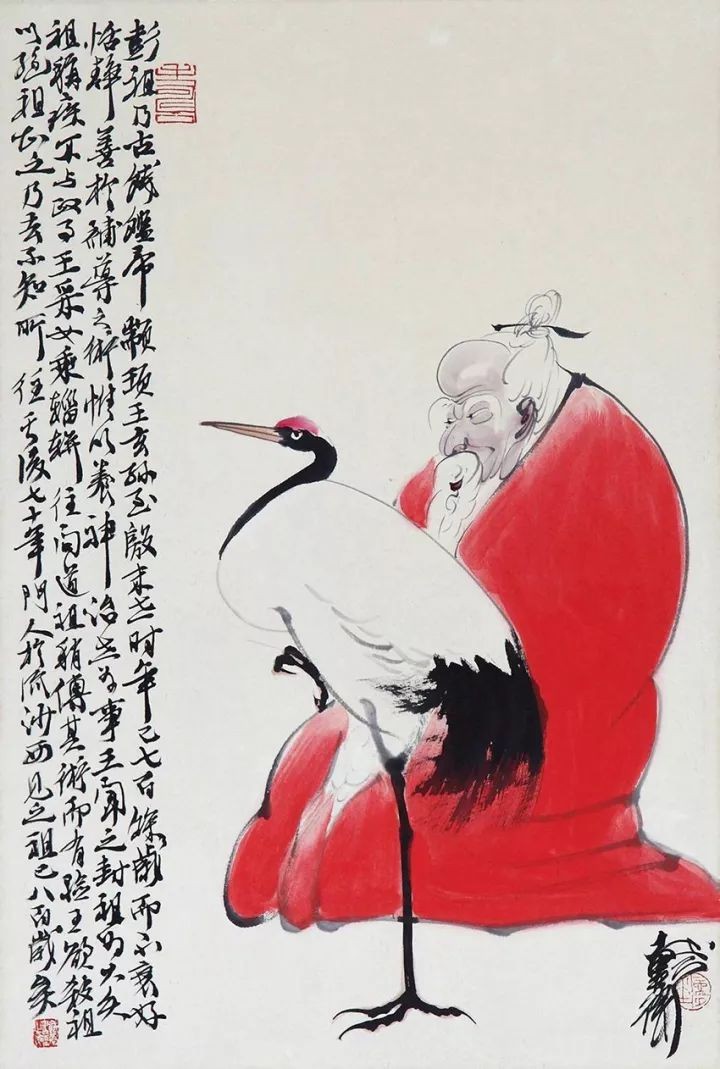 彭祖乃古錢鏗帝顓頊王玄孫至殷末世时年已七百餘歲而不衰好
恬静善於補導之術惟以養神治生为事王聞之封祖为大夫
祖稱疾不与政事王采女乘輜軿往问道祖稍傳其術而有驗王欲殺祖
以絕祖知之乃去不知所往其後七十年門人於流沙西見之祖已八百歲矣
戴衛